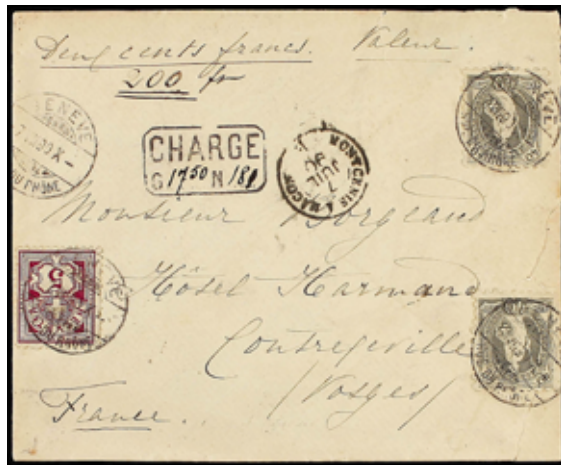 Deux cents francs. Valeur.
200 fr
GENEVE
DU RHÔNE
CHARGE
G 1750 N 181
MONTCENIS A MACON
7
JUIL
90
Monsieur Borgeaud
Hôtel Harmand
Contrexeville
(Vosges)
France.
5